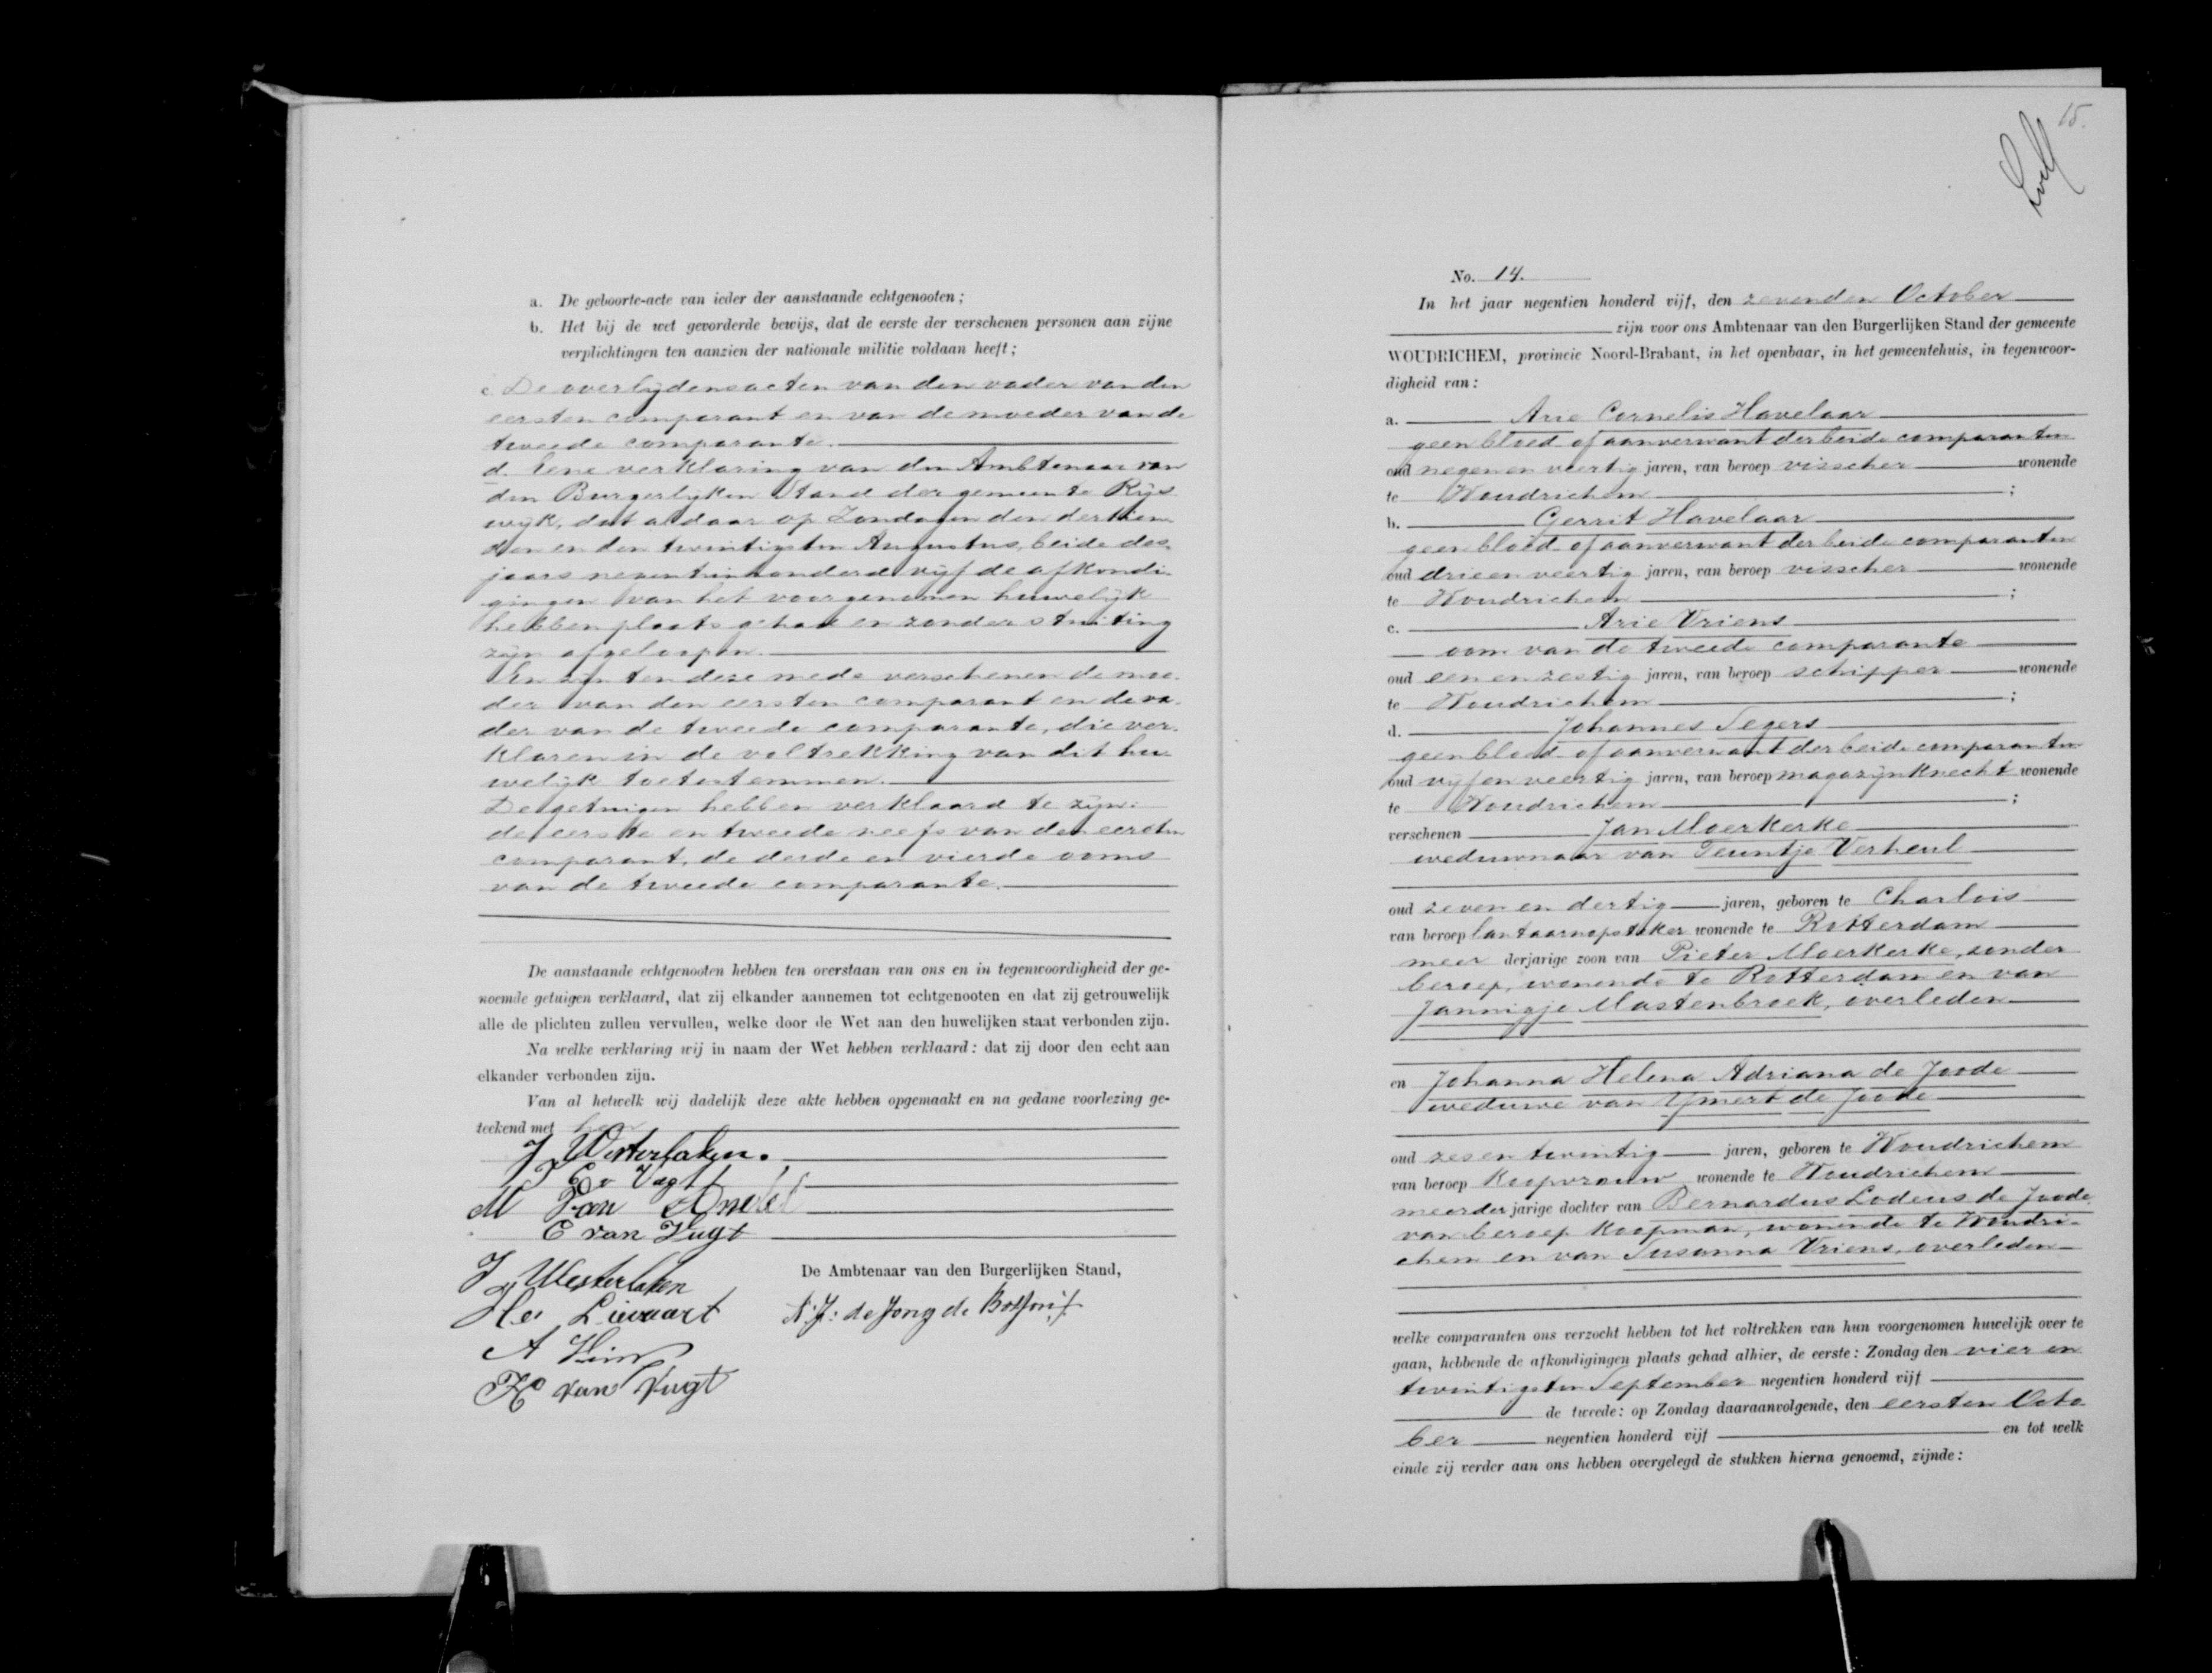 a. De geboorte-acte van ieder der aanstaande echtgenooten;
b. Het bij de wet gevorderde bewijs, dat de eerste der verschenen personen aan zijne
verplichtingen ten aanzien der nationale militie voldaan heeft;
c. De overlijdensacten van den vader van den
eersten comparant en van de moeder van de
tweede comparante.
d. Eene verklaring van den Ambtenaar van
den Burgerlijken Stand der gemeente Rijs
wijk, dat aldaar op Zondagen den dertien
den en den twintigsten Augustus, beide des
jaars negentienhonderd vijf de afkondi-
gingen van het voorgenomen huwelijk
hebben plaats gehad en zonder stuiting
zijn afgeloopen.
En zijn ten deze mede verschenen de moe-
der van den eersten comparant en de va-
der van de tweede comparante, die ver-
klaren in de voltrekking van dit hu-
welijk toetestemmen.
De getuigen hebben verklaard te zijn:
de eerste en tweede neefs van den eersten
comparant, de derde en vierde ooms
van de tweede comparante.
De aanstaande echtgenooten hebben ten overstaan van ons en in tegenwoordigheid der ge-
noemde getuigen verklaard, dat zij elkander aannemen tot echtgenooten en dat zij getrouwelijk
alle de plichten zullen vervullen, welke door de Wet aan den huwelijken staat verbonden zijn.
Na welke verklaring wij in naam der Wet hebben verklaard: dat zij door den echt aan
elkander verbonden zijn.
Van al hetwelk wij dadelijk deze akte hebben opgemaakt en na gedane voorlezing ge-
teekend met hen
J Westerlaken.
Vugt
M Van Andel
E van Vugt
J Westerlaken
De Ambtenaar van den Burgerlijken Stand,
Lievaart
de Jong de
A
K van Vugt
15.
No. 14.
In het jaar negentien honderd vijf, den zevenden October
zijn voor ons Ambtenaar van den Burgerlijken Stand der gemeente
WOUDRICHEM, provincie Noord-Brabant, in het openbaar, in het gemeentehuis, in tegenwoor-
digheid van:
a. Arie Cornelis Havelaar
geen bloed- of aanverwant der beide comparanten
oud negen en veertig jaren, van beroep visscher wonende
te Woudrichem ;
b. Gerrit Havelaar
geen bloed- of aanverwant der beide comparanten
oud drie en veertig jaren, van beroep visscher wonende
te Woudrichem ;
c. Arie Vriens
oom van de tweede comparante
oud een en zestig jaren, van beroep schipper wonende
te Woudrichem ;
d. Johannes Segers
geen bloed- of aanverwant der beide comparanten
oud vijf en veertig jaren, van beroep magazijnknecht wonende
te Woudrichem ;
verschenen Jan Moerkerke
weduwnaar van Teuntje Verheul
oud zeven en dertig jaren, geboren te Charlois
van beroep lantaarnopsteker wonende te Rotterdam
meer derjarige zoon van Pieter Moerkerke, zonder
beroep, wonende te Rotterdam en van
Jannigje Mastenbroek, overleden
en Johanna Helena Adriana de Joode
weduwe van IJmert de Joode
oud zes en twintig jaren, geboren te Woudrichem
van beroep Koopvrouw wonende te Woudrichem
meerder jarige dochter van Bernardus Lodeus de Joode
van beroep Koopman, wonende te Woudri-
chem en van Susanna Vriens, overleden
welke comparanten ons verzocht hebben tot het voltrekken van hun voorgenomen huwelijk over te
gaan, hebbende de afkondigingen plaats gehad alhier, de eerste: Zondag den vier en
twintigsten September negentien honderd vijf
de tweede: op Zondag daaraanvolgende, den eersten Octo
ber negentien honderd vijf en tot welk
einde zij verder aan ons hebben overgelegd de stukken hierna genoemd, zijnde: